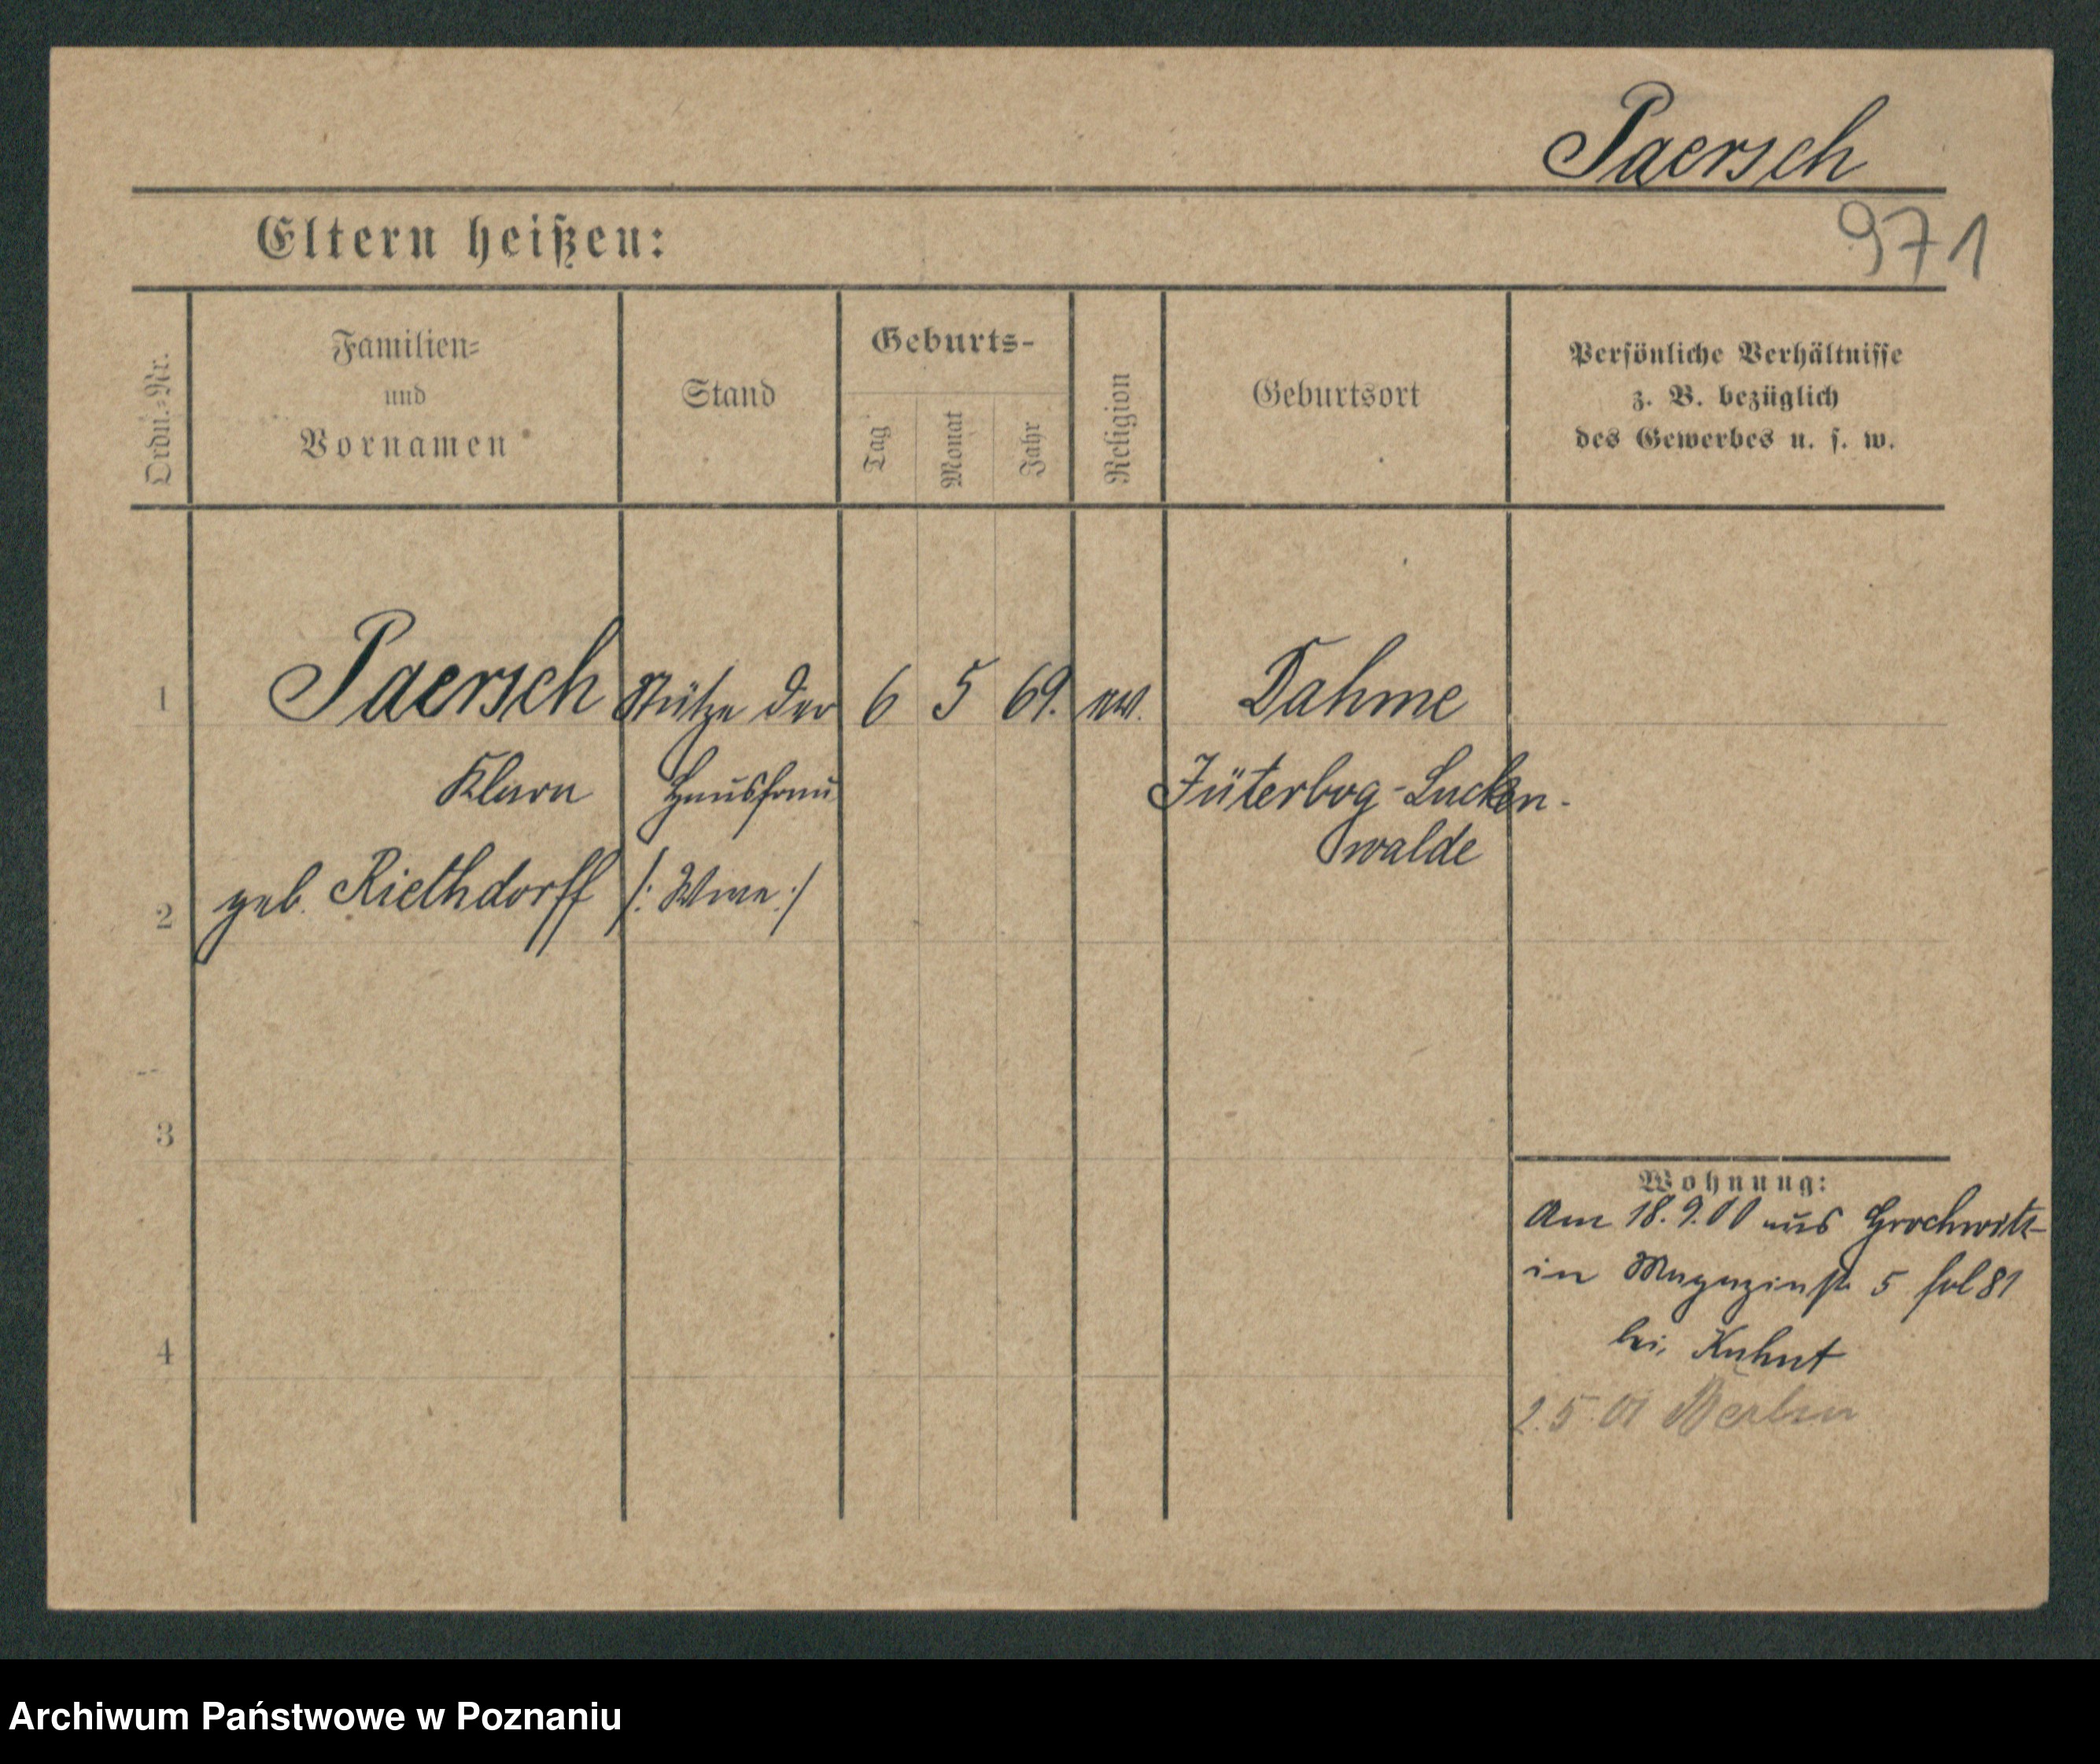 Paersch
971
Eltern heißen:
Ordn.-Nr.
Familien-
und
Vornamen
Stand
Geburts-
Tag
Monat
Jahr
Religion
Geburtsort
Persönliche Verhältnisse
z. B. bezüglich
des Gewerbes u. s. w.
1 Paersch Stütze der 6 5 69. ew. Dahme
Klara Hausfrau Jüterbog-Lucken-
walde
2 geb. Riethdorff /: Wwe :/
3
Wohnung:
Am 18.9.00 aus Grochwitz
in Magazinstr 5 fol 81
bei Kuhnt
4
2.5.01 Berlin
Archiwum Państwowe w Poznaniu